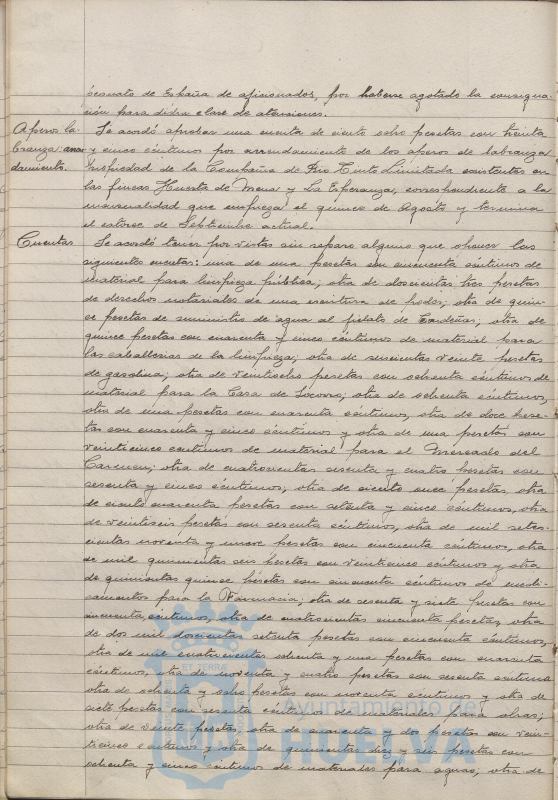 peonato de España de aficionados, por haberse agotado la consigna-
ción para dicha clase de atenciones.
Aperos la-
branza: arren-
damiento.
Se acordó aprobar una cuenta de ciento ocho pesetas con treinta
y cinco céntimos por arrendamiento de los aperos de labranza
propiedad de la Compañía de Rio Tinto Limitada existentes en
las fincas Huerta de Mena y La Esperanza, correspondiente a la
mensualidad que empieza el quince de Agosto y termina
el catorce de Septiembre actual.
Cuentas
Se acordó tener por vistas sin reparo alguno que ofrecer las
siguientes cuentas: una de una pesetas con cincuenta céntimos de
material para limpieza pública; otra de doscientas tres pesetas
de derechos notariales de una escritura de poder; otra de quin-
ce pesetas de suministro de agua al filato de Cardeñas; otra de
quince pesetas con cuarenta y cinco céntimos de material para
las caballerías de la limpieza; otra de seiscientas veinte pesetas
de gasolina; otra de veintiocho pesetas con ochenta céntimos de
material para la Casa de Socorro; otra de ochenta céntimos,
otra de una pesetas con cuarenta céntimos, otra de doce pese-
tas con cuarenta y cinco céntimos y otra de una pesetas con
veinticinco céntimos de material para el Mercado del
Carmen; otra de cuatrocientas sesenta y cuatro pesetas con
sesenta y cinco céntimos, otra de ciento once pesetas, otra
de ciento cuarenta pesetas con setenta y cinco céntimos, otra
de veintiseis pesetas con sesenta céntimos, otra de mil setes-
cientas noventa y nueve pesetas con cincuenta céntimos, otra
de mil quinientas seis pesetas con veinticinco céntimos y otra
de quinientas quince pesetas con cincuenta céntimos de medi-
camentos para la Farmacia; otra de sesenta y siete pesetas con
cincuenta céntimos, otra de cuatrocientas cincuenta pesetas, otra
de dos mil doscientas setenta pesetas con cincuenta céntimos,
otra de mil cuatrocientas ochenta y una pesetas con cuarenta
céntimos, otra de noventa y cuatro pesetas con sesenta céntimos
otra de ochenta y ocho pesetas con noventa céntimos y otra de
siete pesetas con sesenta céntimos de materiales para obras;
otra de veinte pesetas, otra de cuarenta y dos pesetas con vein-
ticinco céntimos y otra de quinientas diez y seis pesetas con
ochenta y cinco céntimos de materiales para aguas; otra de
ET TERRÆ
Ayuntamiento de
HUELVA